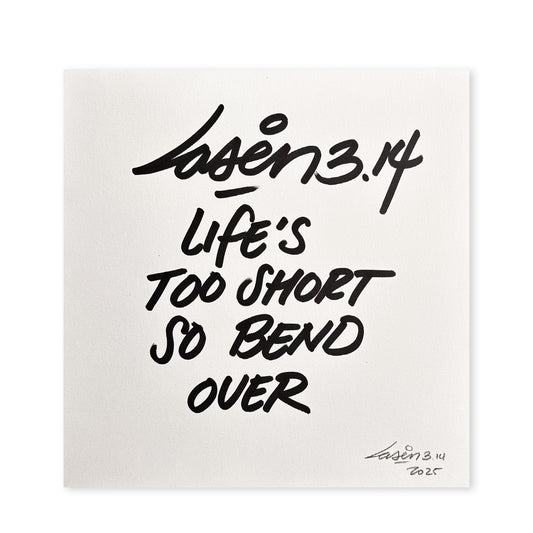 Laser 3.14
LIFE'S
TOO SHORT
SO BEND
OVER
Laser 3.14
2025